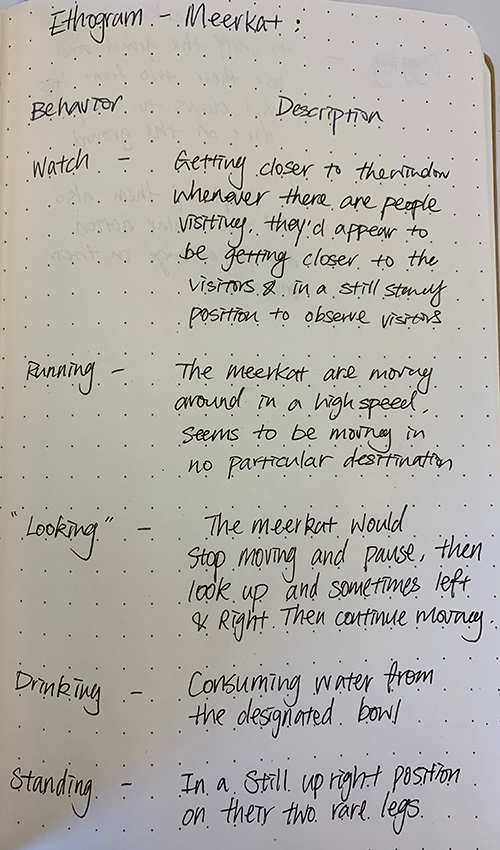 Ethogram - Meerkat:
Behavior Description
Watch - Getting closer to the window
whenever there are people
visiting, they'd appear to
be getting closer to the
visitors & in a still standy
position to observe visitors
Running - The meerkat are moving
around in a high speed,
seems to be moving in
no particular desitination
"Looking" - The meerkat would
stop moving and pause, then
look up and sometimes left
& Right. Then continue moving.
Drinking - Consuming water from
the designated bowl
Standing - In a still upright position
on their two rare legs.